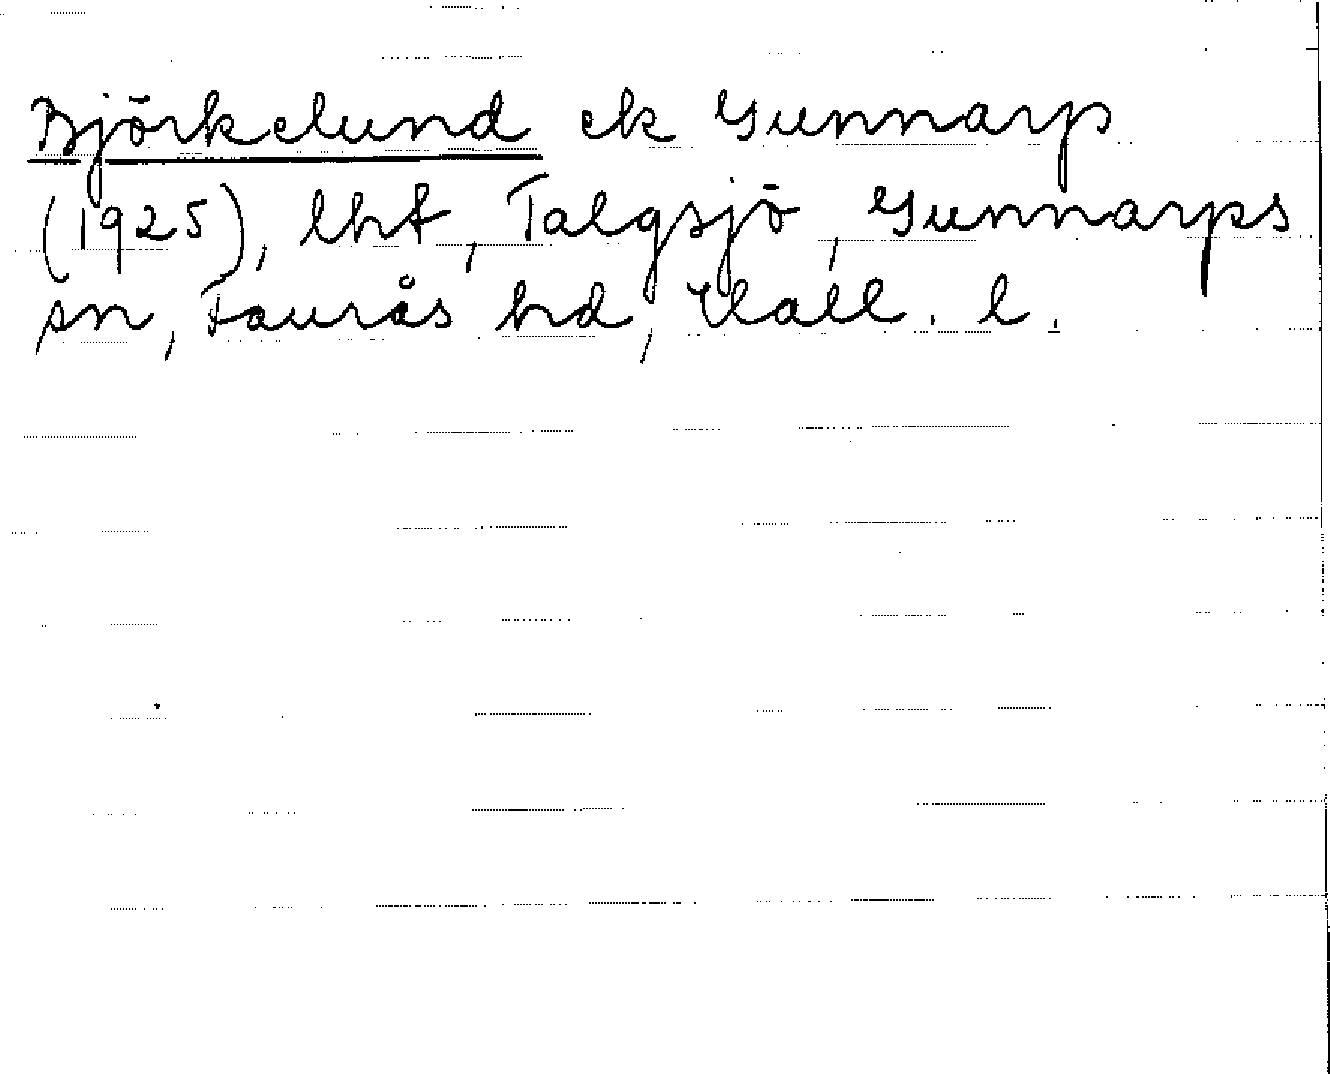 Björkelund ek Gunnarp
(1925), lht, Talgsjö, Gunnarps
sn, Faurås hd, Hall. l.